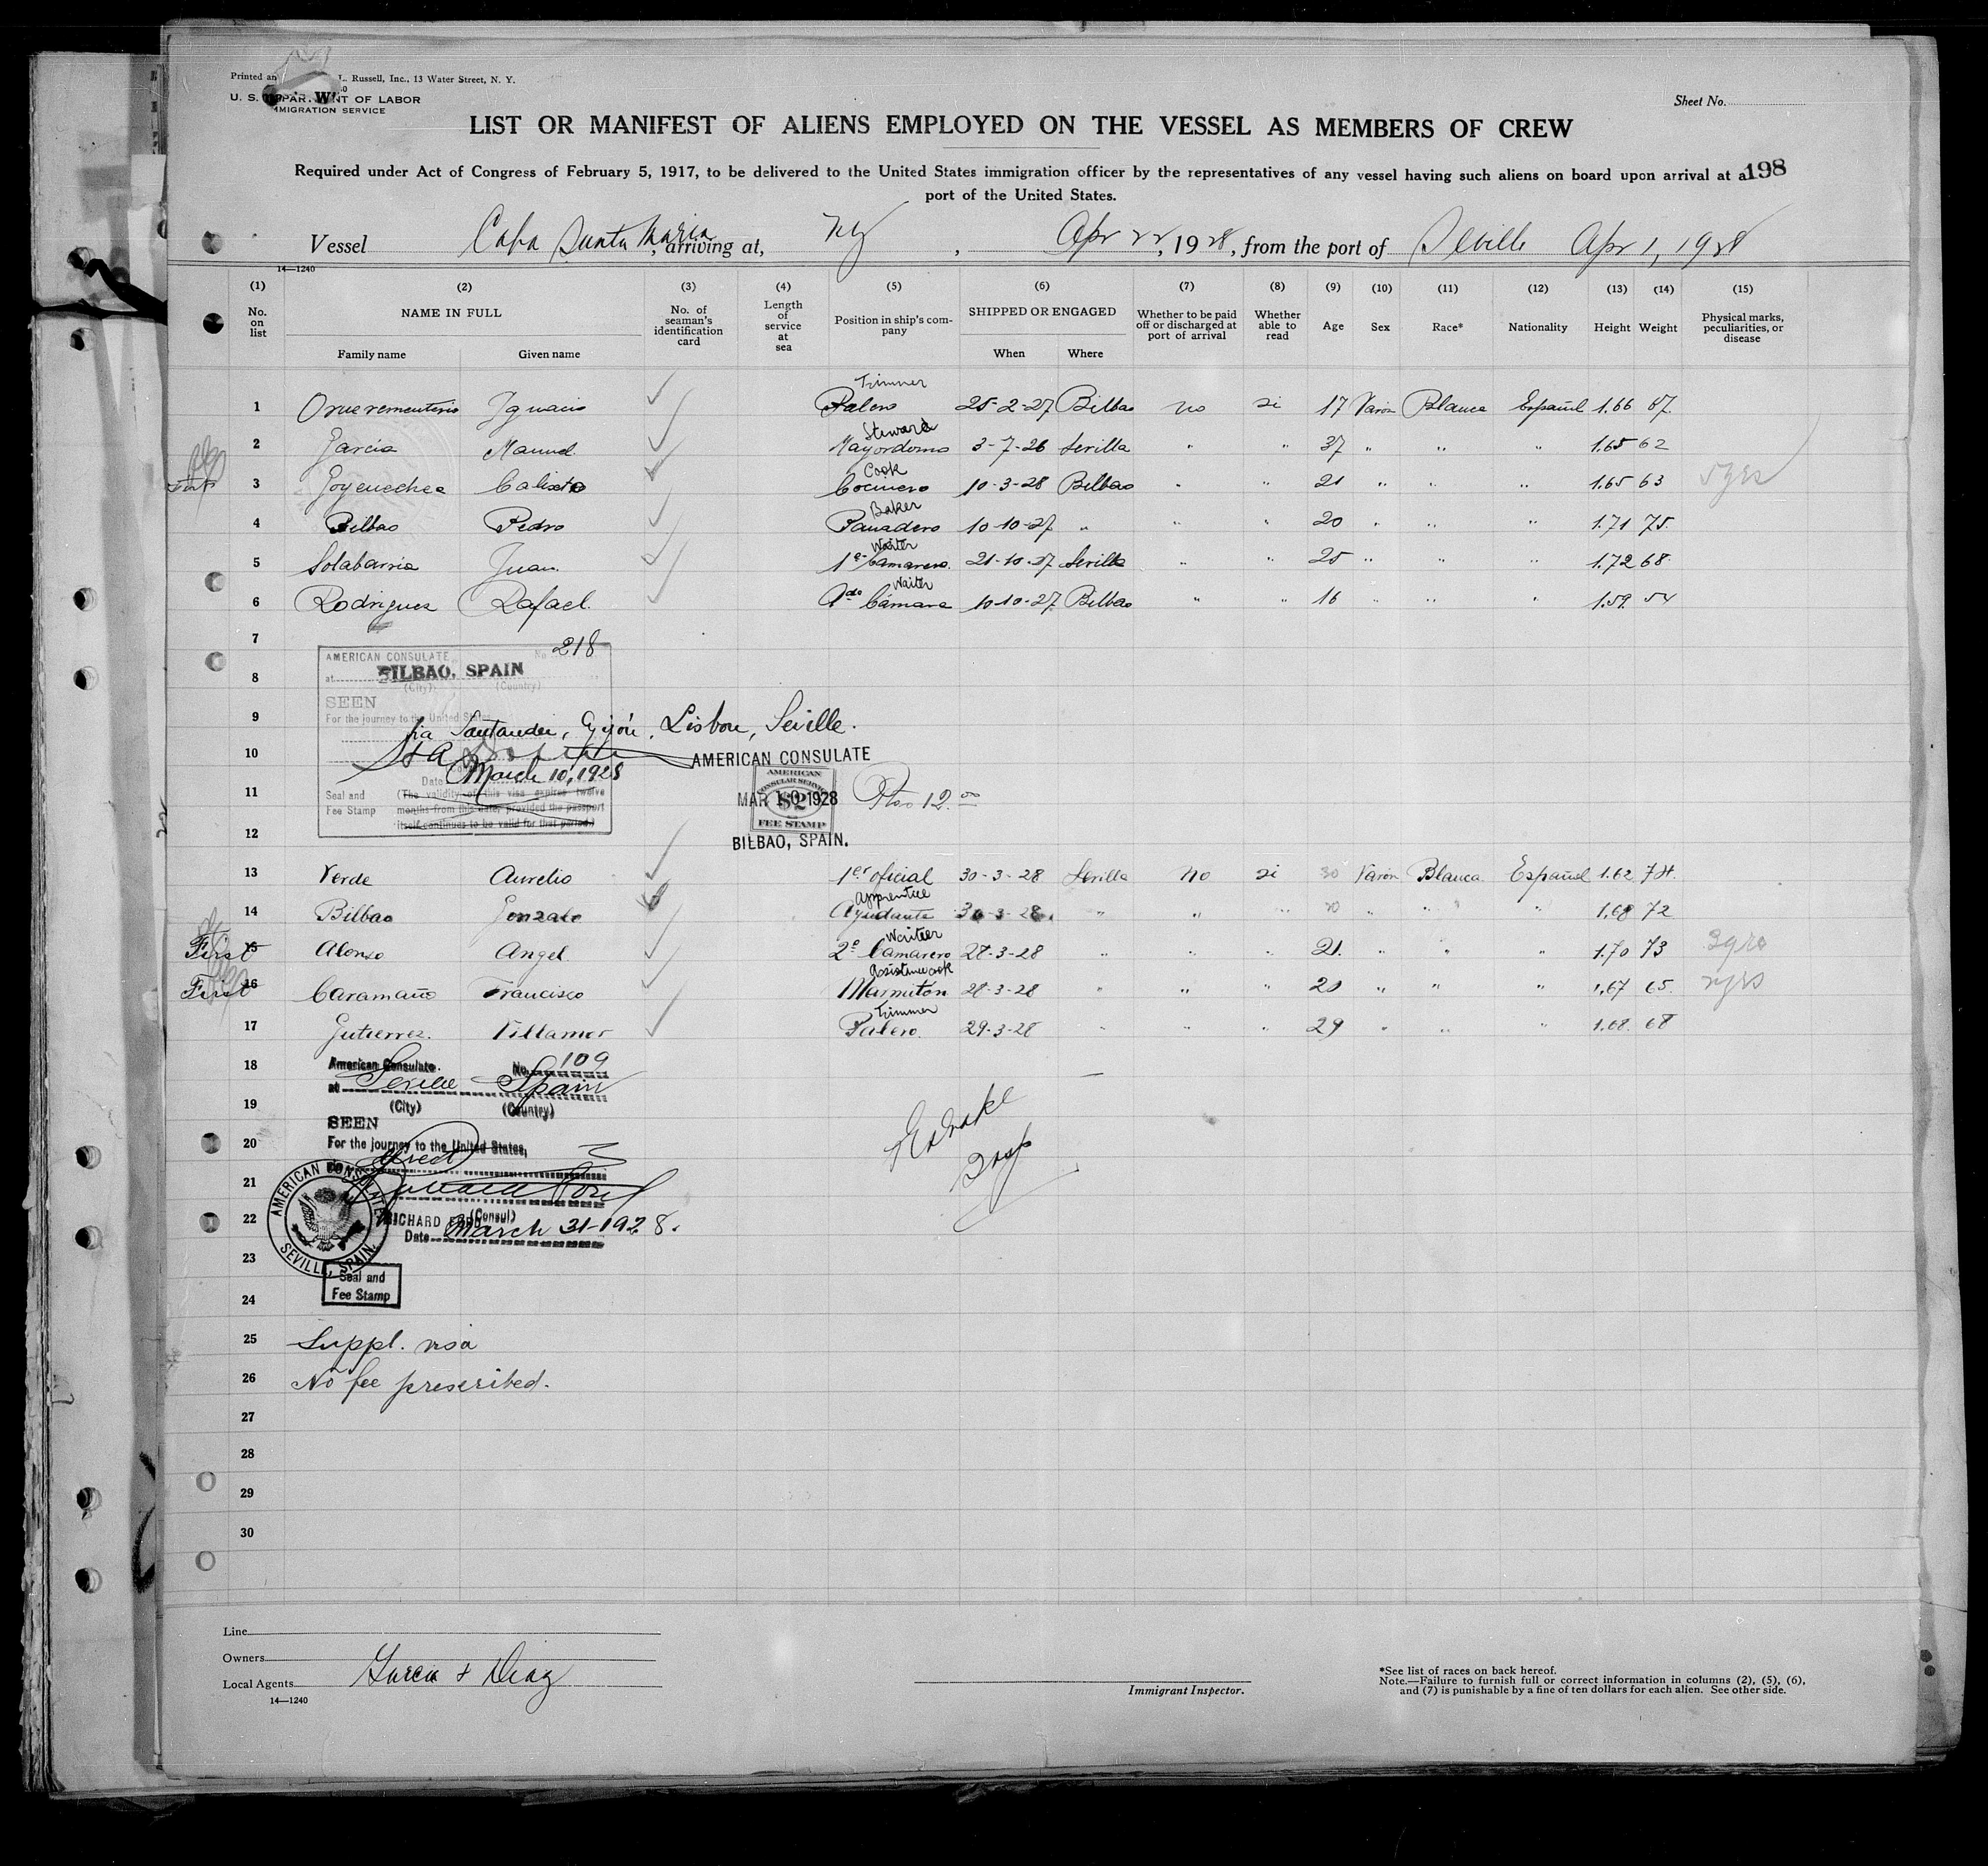 Printed an L. Russell, Inc., 13 Water Street, N. Y.
U. S. DEPARTMENT OF LABOR
IMMIGRATION SERVICE
Sheet No.
LIST OR MANIFEST OF ALIENS EMPLOYED ON THE VESSEL AS MEMBERS OF CREW
Required under Act of Congress of February 5, 1917, to be delivered to the United States immigration officer by the representatives of any vessel having such aliens on board upon arrival at a
198
port of the United States.
Vessel Cabo Santa Maria, arriving at, NY, Apr 22, 1928, from the port of Seville Apr 1, 1928
14—1240
(1) (2) (3) (4) (5) (6) (7) (8) (9) (10) (11) (12) (13) (14) (15)
No. on list NAME IN FULL No. of seaman's identification card Length of service at sea Position in ship's company SHIPPED OR ENGAGED Whether to be paid off or discharged at port of arrival Whether able to read Age Sex Race* Nationality Height Weight Physical marks, peculiarities, or disease
Family name Given name When Where
Trimmer
1 Oruerementerio Ignacio Palero 25-2-27 Bilbao no si 17 Varón Blanca Español 1.66 67
Steward
2 Garcia Manuel Mayordomo 3-7-26 Sevilla " " 37 " " " 1.65 62
Cook
3 Goyenechea Calixto Cocinero 10-3-28 Bilbao " " 21 " " " 1.65 63 5yrs
Baker
4 Bilbao Pedro Panadero 10-10-27 " " " 20 " " " 1.71 75
Waiter
5 Solabarria Juan 1º Camarero 21-10-27 Sevilla " " 25 " " " 1.72 68
Waiter
6 Rodriguez Rafael Cámara 10-10-27 Bilbao " " 16 " " " 1.59 54
7
AMERICAN CONSULATE No 218
8
at BILBAO, SPAIN
(City) (Country)
SEEN
9
For the journey to the United States
via Santander, Gijón, Lisbon, Seville.
10
AMERICAN CONSULATE
Date March 10, 1928
11
Seal and Fee Stamp (The validity of this visa expires twelve months from this date, provided the passport itself continues to be valid for that period.)
AMERICAN CONSULAR SERVICE $2 FEE STAMP
MAR 10 1928
12.00
12
BILBAO, SPAIN.
13 Verde Aurelio 1er oficial 30-3-28 Sevilla no si 30 Varón Blanca Español 1.62 74
apprentice
14 Bilbao Gonzalo Ayudante 30-3-28 " " " 20 " " " 1.68 72
Waiter
First 15 Alonso Angel 2º Camarero 28-3-28 " " " 21 " " " 1.70 73 3yrs
First 16 Caramaño Francisco Marmiton 28-3-28 " " " 20 " " " 1.67 65 2yrs
Trimmer
17 Gutierrez Villamor Palero 29-3-28 " " " 29 " " " 1.68 68
18
American Consulate. No. 109
at Seville Spain
19
(City) (Country)
SEEN
20
For the journey to the United States,
21
22
(Consul)
RICHARD FORD
Date March 31-1928.
AMERICAN CONSULATE SEVILLE, SPAIN.
23
Seal and
Fee Stamp
24
25 Suppl. visa
26 No fee prescribed.
27
28
29
30
Line
Owners
Local Agents Garcia & Diaz
14—1240
Immigrant Inspector.
*See list of races on back hereof.
Note.—Failure to furnish full or correct information in columns (2), (5), (6),
and (7) is punishable by a fine of ten dollars for each alien. See other side.